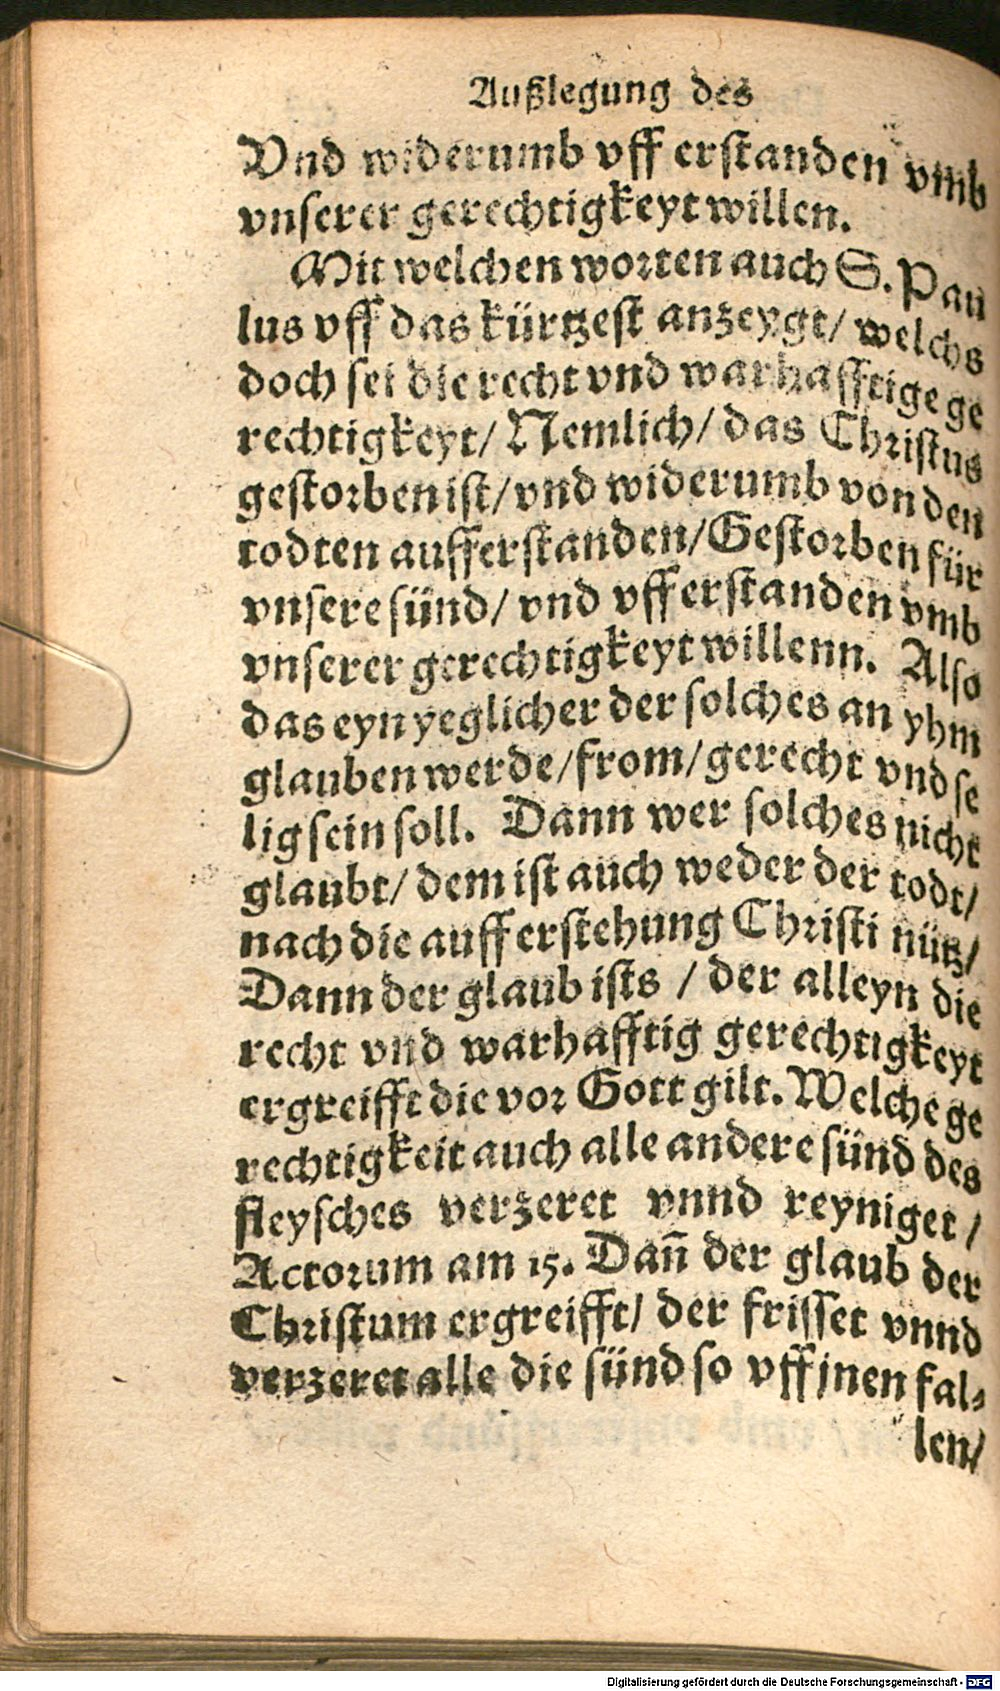 Außlegung des
Vnd widerumb vff erstanden vmb
vnserer gerechtigkeyt willen.
Mit welchen worten auch S. Pau
lus vff das kürtzest anzeygt/ welchs
doch sei die recht vnd warhafftige ge
rechtigkeyt/ Nemlich/ das Christus
gestorben ist/ vnd widerumb von den
todten aufferstanden/ Gestorben für
vnsere sünd/ vnd vff erstanden vmb
vnserer gerechtigkeyt willenn. Also
das eyn yeglicher der solches an yhm
glauben werde/ from/ gerecht vnd se
lig sein soll. Dann wer solches nicht
glaubt/ dem ist auch weder der todt/
nach die aufferstehung Christi nütz/
Dann der glaub ists / der alleyn die
recht vnd warhafftig gerechtigkeyt
ergreifft die vor Gott gilt. Welche ge
rechtigkeit auch alle andere sünd des
fleysches verzeret vnnd reyniget /
Actorum am 15. Dañ der glaub der
Christum ergreifft/ der frisset vnnd
verzeret alle die sünd so vff jnen fal⸗
len/
Digitalisierung gefördert durch die Deutsche Forschungsgemeinschaft - DFG